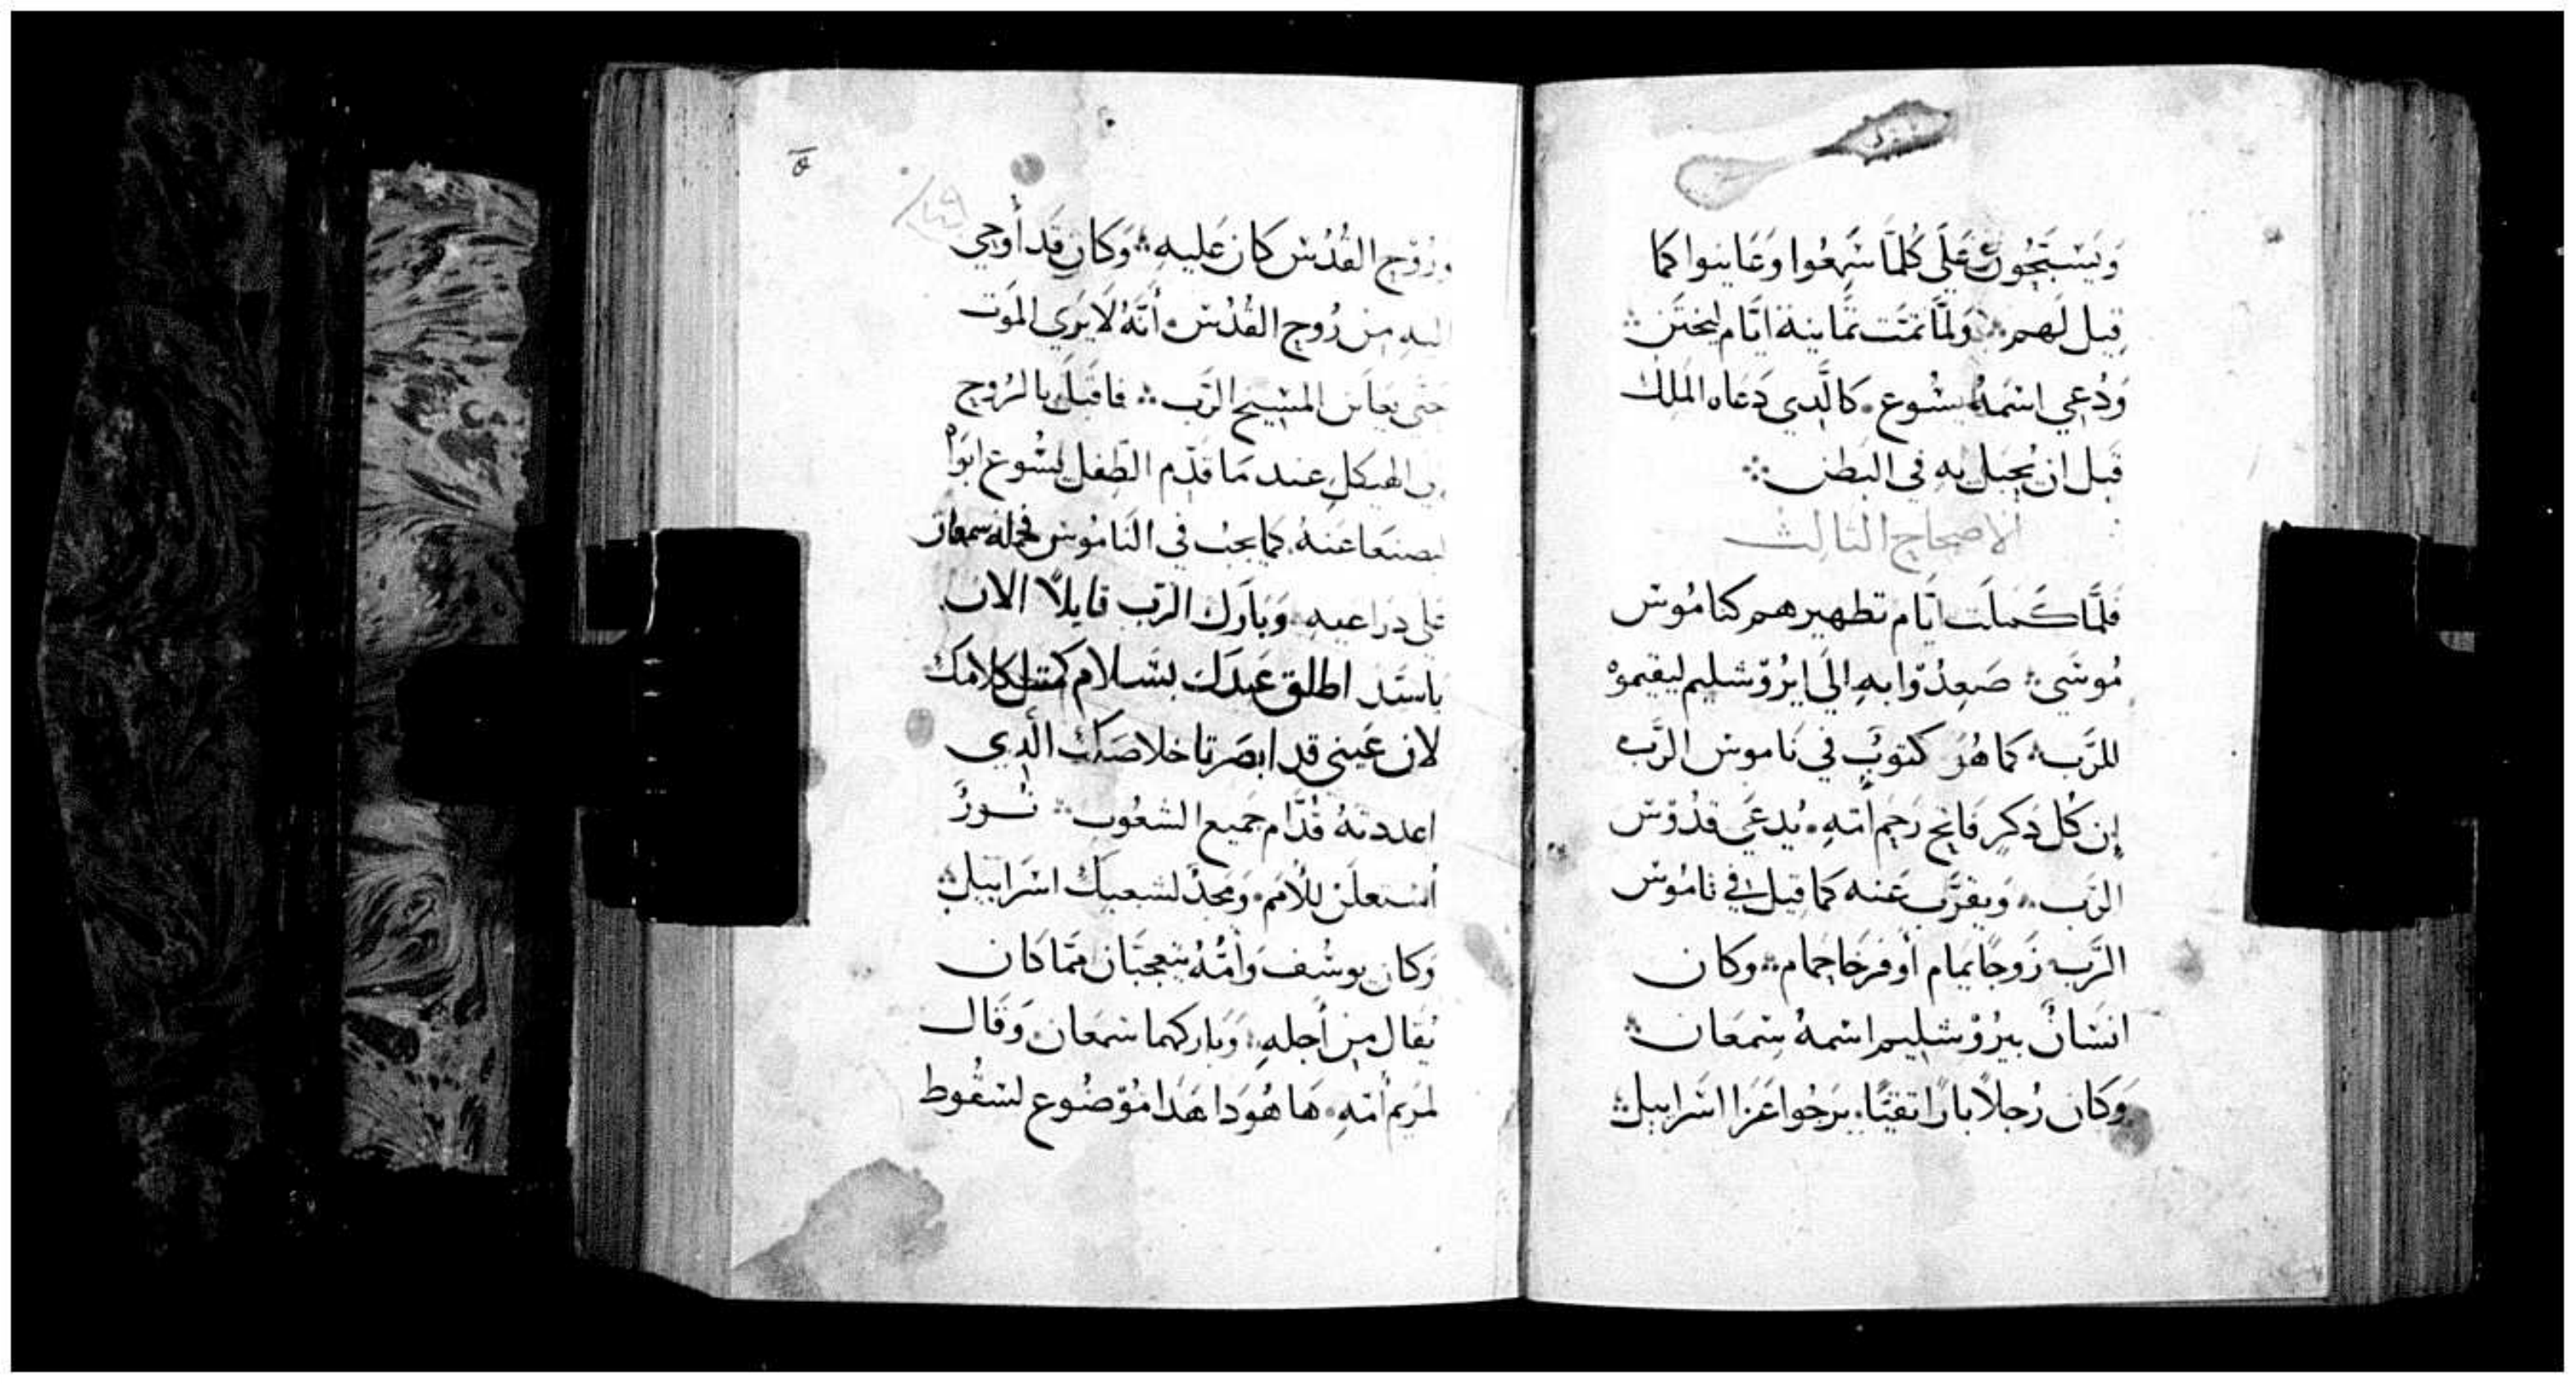 وَيَسْبَحُون عَلَى كُلمَا سَمِعُوا وَعَاينوا كما
قِيل لَهم ۞ وَلمَّا تمَّت ثمَانية ايَّام ليختَن ۞
وَدُعِي اسْمهُ يسُوع. كالَّدِي دَعَاه الملَاك
قَبل ان يُحبَل بهِ في البَطن ۞
الاصحاح الثالث
فلمَّا كَملَت ايَّام تطهيرهم كنامُوس
مُوسَى ۞ صَعِدُوا بهِ الَى ايرُوشليم ليقيموهْ
للرَّب ۞ كما هُو كتوبٌ في نَاموس الرَّب
إن كُل دَكرٍ فَاتح رَحِم امّهِ. يُدعَى قدُوّس
الرَب ۞ وَيقرَّب عَنه كمَا قيل في نَامُوس
الرَّب زَوجًا يمَام أو فرخَا حمَام ۞ وكان
انسَانٌ بيرُوْشليم اسْمهُ سِمعَان ۞
وَكان رُجلاً بارًا تقيًا. يَرجُوا عَزا اسَراييل ۞
ورُوْح القُدُس كان عَليهِ ۞ وَكان قَد أوحِي
اليهِ مِن رُوح القُدُس. أنَّهُ لَا يَرَي الموَت
حتَى يعَاين المسِيح الرَّب ۞ فاقبَل بالرُوح
الي الهيكلِ عند مَا قدَّم الطِفل يسُوع ابَوَاْه
ليصنَعَا عَنهُ. كما يجبُ في النَامُوس فحمله سمعان
علي دراعيه. وَبَارَك الرّب قايلاً الان
ياسَيد اطلق عَبدَك بسَلام كمتل كلامك
لان عَينى قد ابصَرتا خلاصَك الَّدِي
اعددتهُ قُدَّام جَميع الشعُوب ۞ نُور
أستعلَن للأمَم. وَمجدًا لشعبك اسْراييل ۞
وَكان يوسُف وَأمُّهُ يتعجبَّان ممَّا كان
يُقال مِن أجلهِ ۞ وَباركهما سمعَان. وَقَال
لمريَم أمّهِ. هَا هُوَدا هَدَا مُوّضُوع لسُقُوط